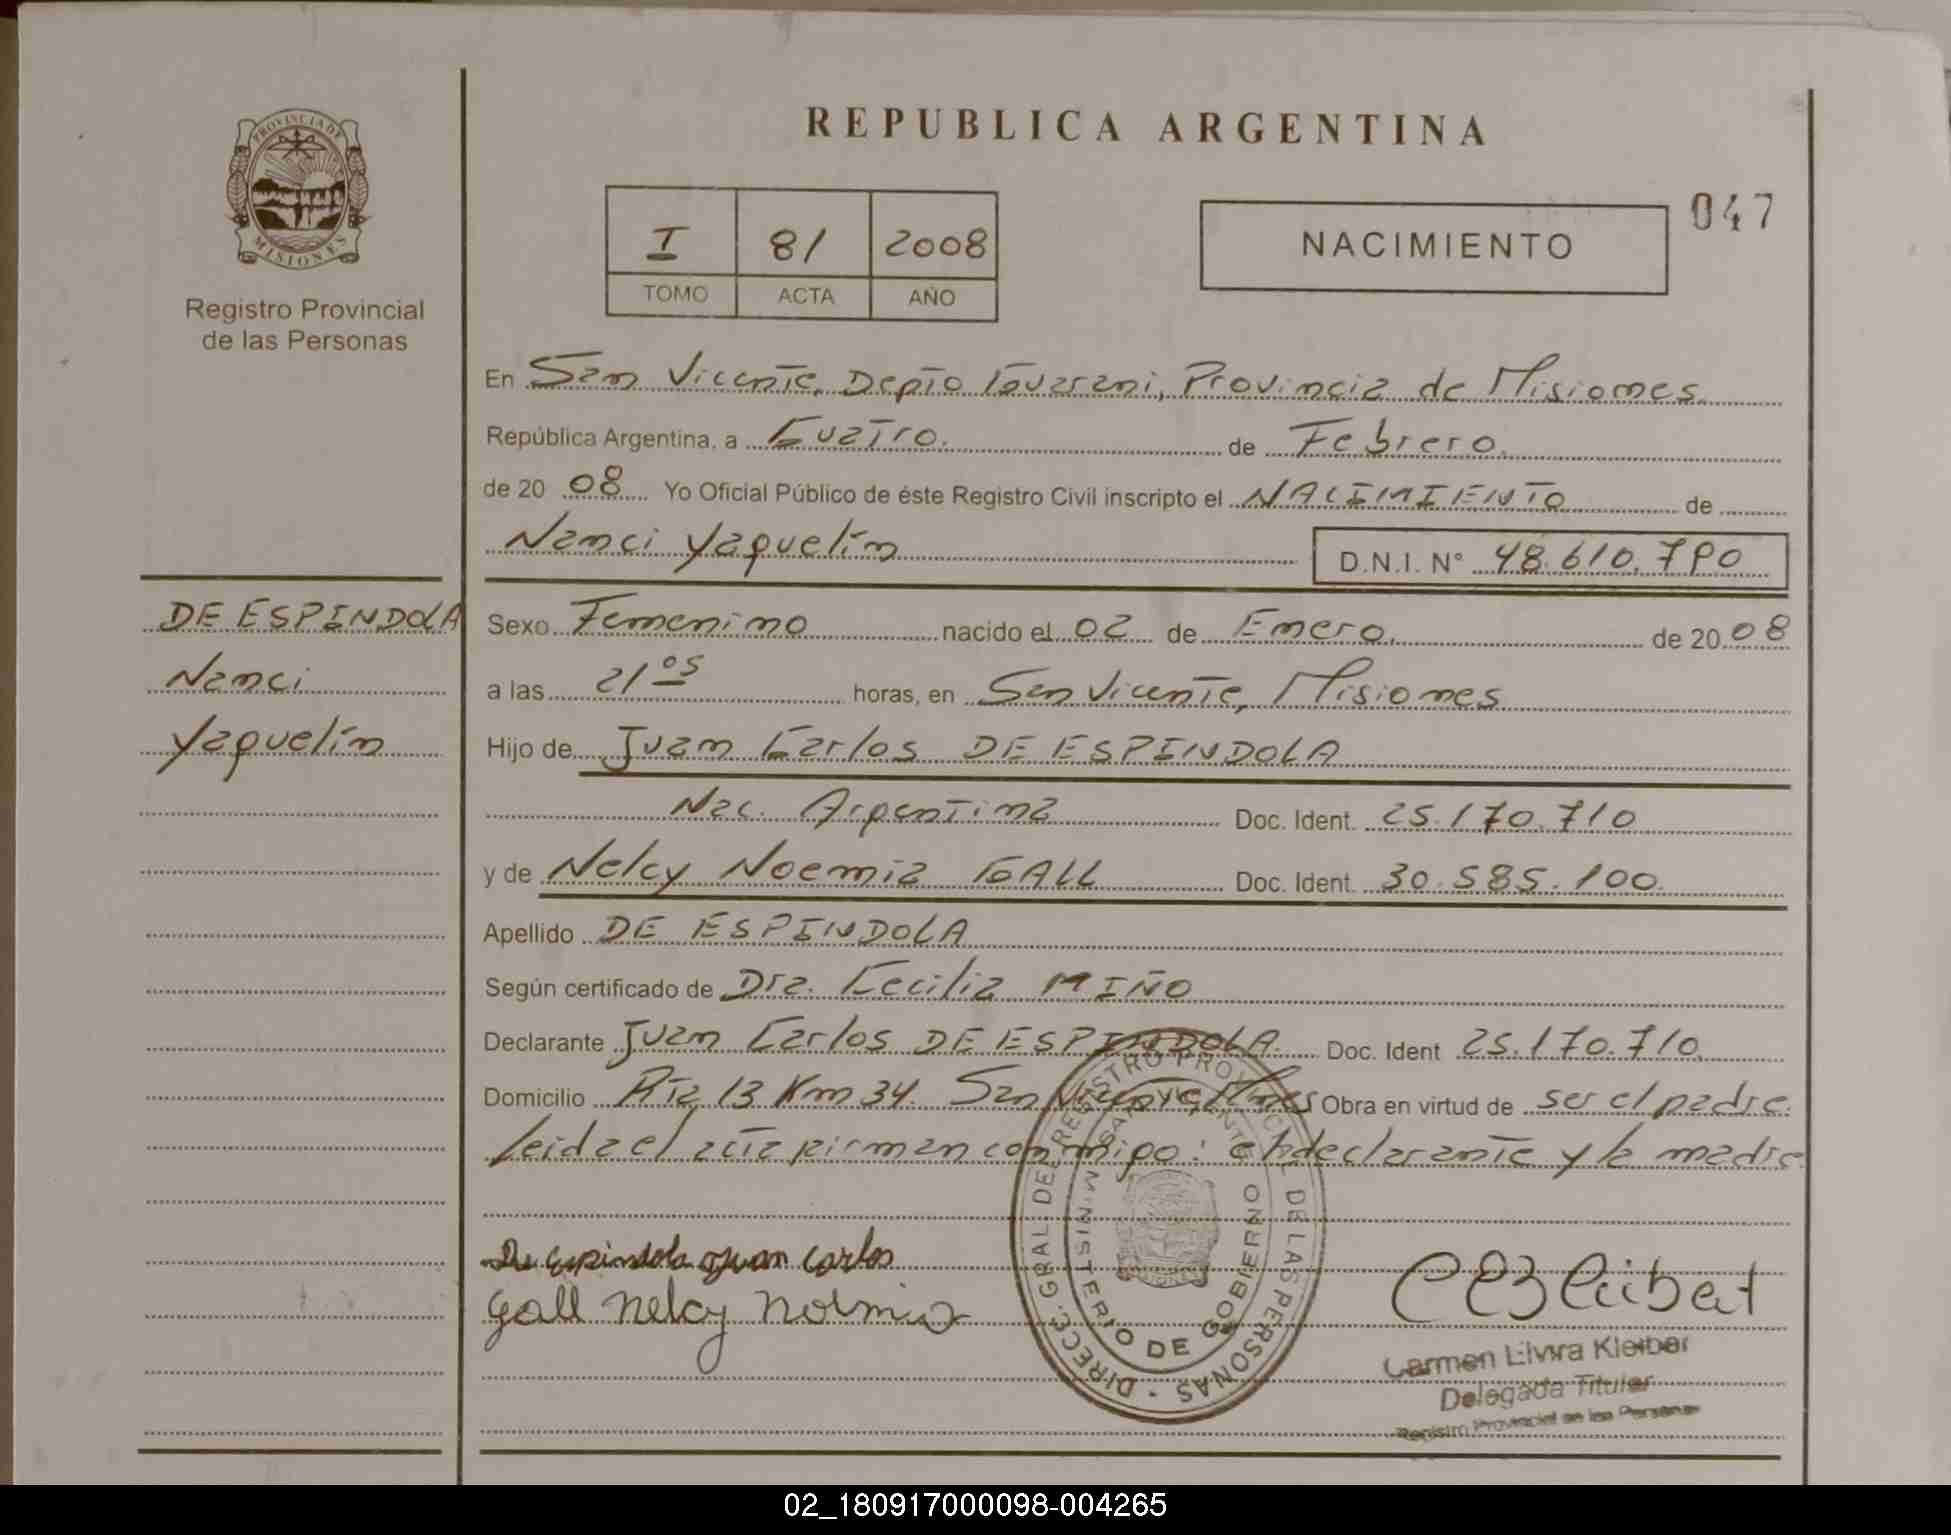 PROVINCIA DE
MISIONES
Registro Provincial
de las Personas
REPUBLICA ARGENTINA
I 81 2008
TOMO ACTA AÑO
NACIMIENTO
047
En San Vicente, Depto Guarani, Provincia de Misiones
República Argentina, a Cuatro. de Febrero.
de 20 08 Yo Oficial Público de éste Registro Civil inscripto el NACIMIENTO de
Nanci Yaquelín D.N.I. N° 48.610.790
DE ESPINDOLA
Nanci
Yaquelín
Sexo Femenino nacido el 02 de Enero. de 20 08
a las 21 05 horas, en San Vicente, Misiones
Hijo de Juan Carlos DE ESPINDOLA
Nac. Argentina Doc. Ident. 25.170.710
y de Nelcy Noemia GALL Doc. Ident. 30.585.100
Apellido DE ESPINDOLA
Según certificado de Dra. Cecilia MIÑO
Declarante Juan Carlos DE ESPINDOLA Doc. Ident 25.170.710
Domicilio Rta 13 Km 34. San Vicente, Mnes Obra en virtud de ser el padre.
Leida el acta firman conmigo: el declarante y la madre
De Espindola Juan Carlos
Gall Nelcy Noemia
DIRECC. GRAL. DEL REGISTRO PROVINCIAL DE LAS PERSONAS
SAN VICENTE
MINISTERIO DE GOBIERNO
MISIONES
Carmen Elvira Kleiber
Delegada Titular
Registro Provincial de las Personas
02_180917000098-004265